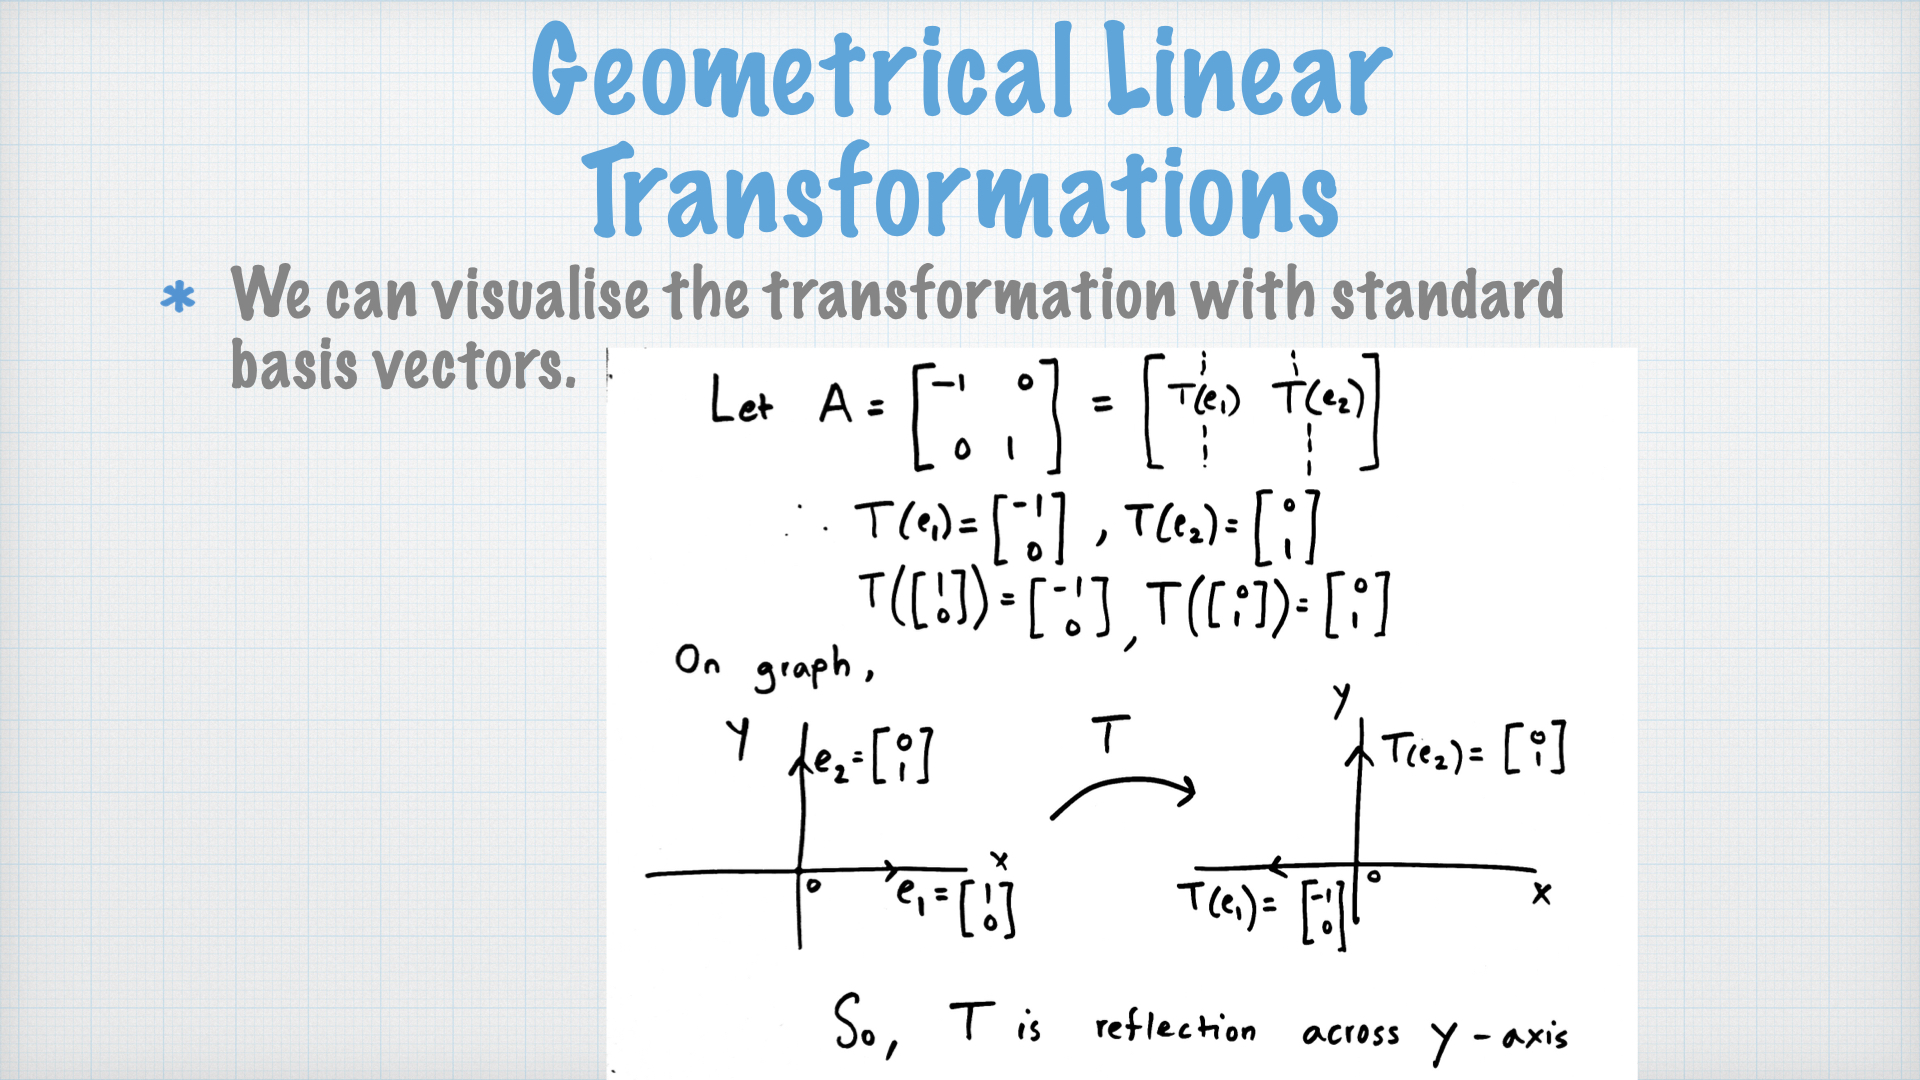 Geometrical Linear
Transformations
* We can visualise the transformation with standard
basis vectors.
Let A = [-1 0; 0 1] = [T(e₁) T(e₂)]
∴ T(e₁) = [-1; 0] , T(e₂) = [0; 1]
T([1; 0]) = [-1; 0] , T([0; 1]) = [0; 1]
On graph,
y e₂ = [0; 1]
x
0
e₁ = [1; 0]
T
y
T(e₂) = [0; 1]
0
x
T(e₁) = [-1; 0]
So, T is reflection across y-axis